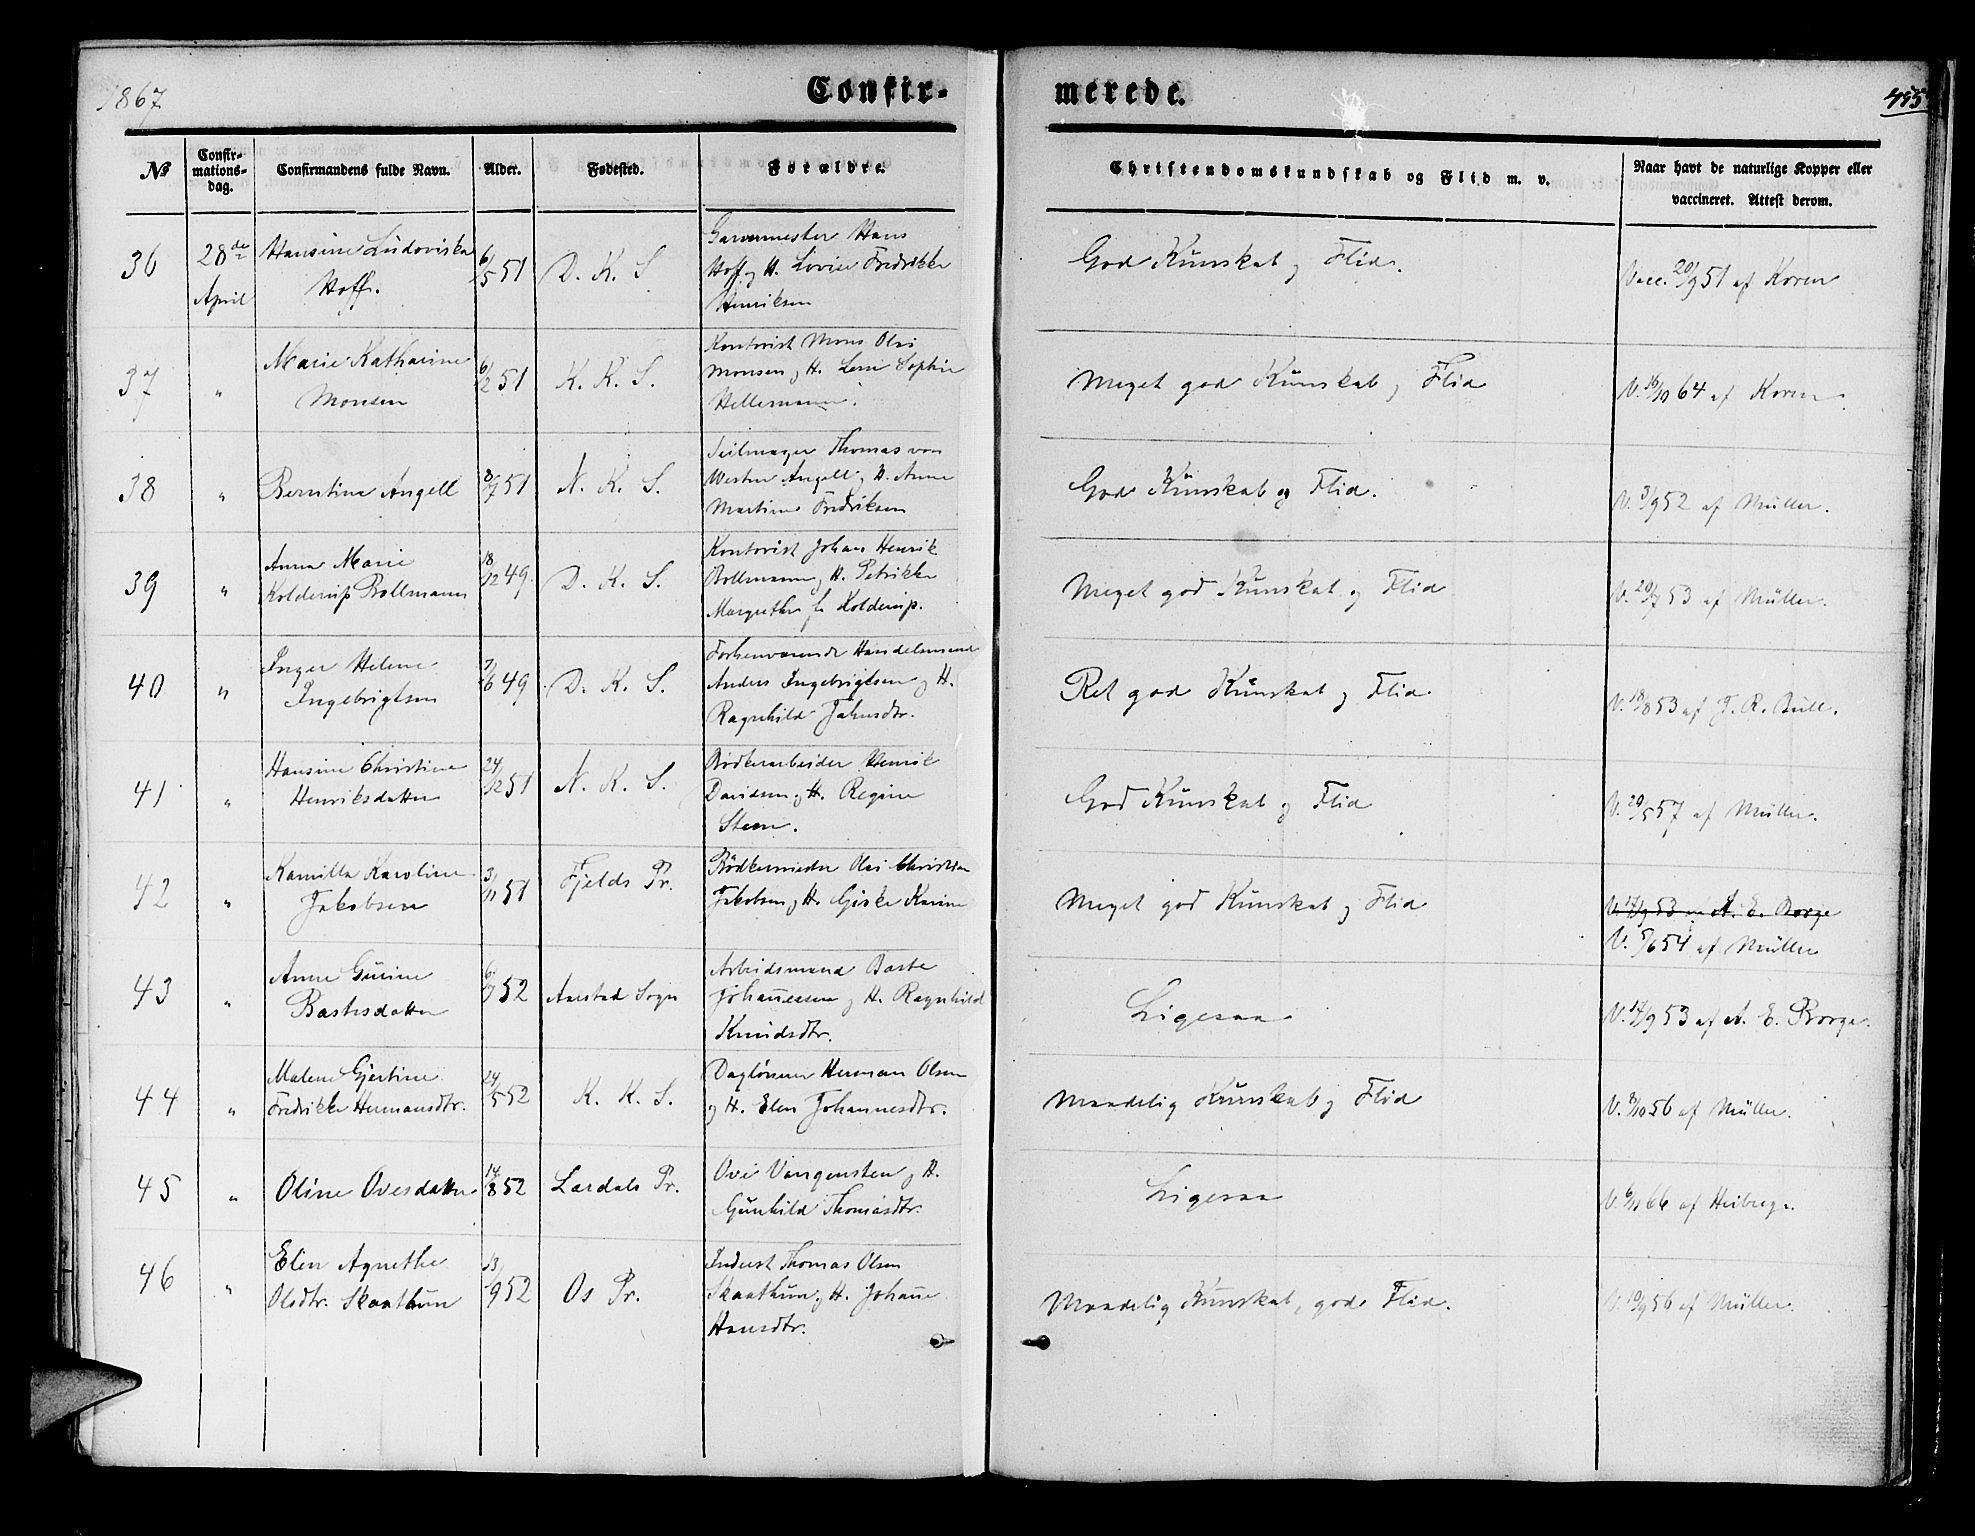 1867
Confir-
merede.
495
№
Confir-
mations-
dag.
Confirmandens fulde Navn.
Alder.
Fødested.
Forældre.
Christendomskundskab og Flid m. v.
Naar havt de naturlige Kopper eller
vaccineret. Attest derom.
36
28de
April
Hansine Ludoviska
Hoff.
6/5 51
D. K. S
Garvermester Hans
Hoff og H. Lovise Fredrikke
Henriksen
God Kunskab og Flid.
Vacc. 20/9 51 af Koren
37
"
Marie Katharine
Monsen
6/2 51
K. K. S.
Kontorist Mons Olai
Monsen og H. Lene Sophie
Hellemann.
Meget god Kunskab og Flid
V. 16/10 64 af Koren
38
"
Berntine Angell
8/7 51
N. K. S.
Seilmager Thomas von
Westen Angell og H. Anne
Martine Fredriksen
God Kunskab og Flid.
V. 3/9 52 af Müller.
39
"
Anna Marie
Kolderup Bollmann
18/12 49
D. K. S.
Kontorist Johan Henrik
Bollmann og H. Petrikke
Margrethe f. Kolderup.
Meget god Kunskab og Flid
V. 20/7 53 af Müller.
40
"
Inger Helene
Ingebrigtsen
7/6 49
D. K. S.
Forhenværende Handelsmand
Anders Ingebrigtsen og H.
Ragnhild Jahnsdtr.
Ret god Kunskab og Flid
V. 18/8 53 af J. R. Bull.
41
"
Hansine Christine
Henriksdatter
24/12 51
N. K. S
Bødkerarbeider Henrik
Davidsen og H. Regine
Steen.
God Kunskab og Flid
V. 20/5 57 af Müller.
42
"
Kamilla Karoline
Jakobsen
3/11 51
Fjelds Pr.
Bødkermester Olai Christian
Jakobsen og H. Giske Karine
Meget god Kunskab og Flid
V. 14/9 53 af A. E. Borge
V. 5/6 54 af Müller
43
"
Anne Gurine
Bastesdatter
6/7 52
Aarstad Sogn
Arbeidsmand Baste
Johannesen og H. Ragnhild
Knudsdtr.
Ligesaa
V. 14/9 53 af A. E. Borge.
44
"
Malene Gjertine
Fredrikke Hermansdtr.
24/5 52
K. K. S.
Dagløner Herman Olsen
og H. Elen Johannesdtr.
Maadelig Kunskab og Flid
V. 8/10 56 af Müller.
45
"
Oline Ovesdatter
14/8 52
Lærdals Pr.
Ove Vangensten og H.
Gunhild Thomasdtr.
Ligesaa
V. 6/11 66 af Heiberg.
46
"
Elen Agnethe
Olsdtr. Skaathun
13/9 52
Os Pr.
Inderst Thomas Olsen
Skaathun og H. Johanne
Hansdtr.
Maadelig Kunskab, god Flid.
V. 10/9 56 af Müller.